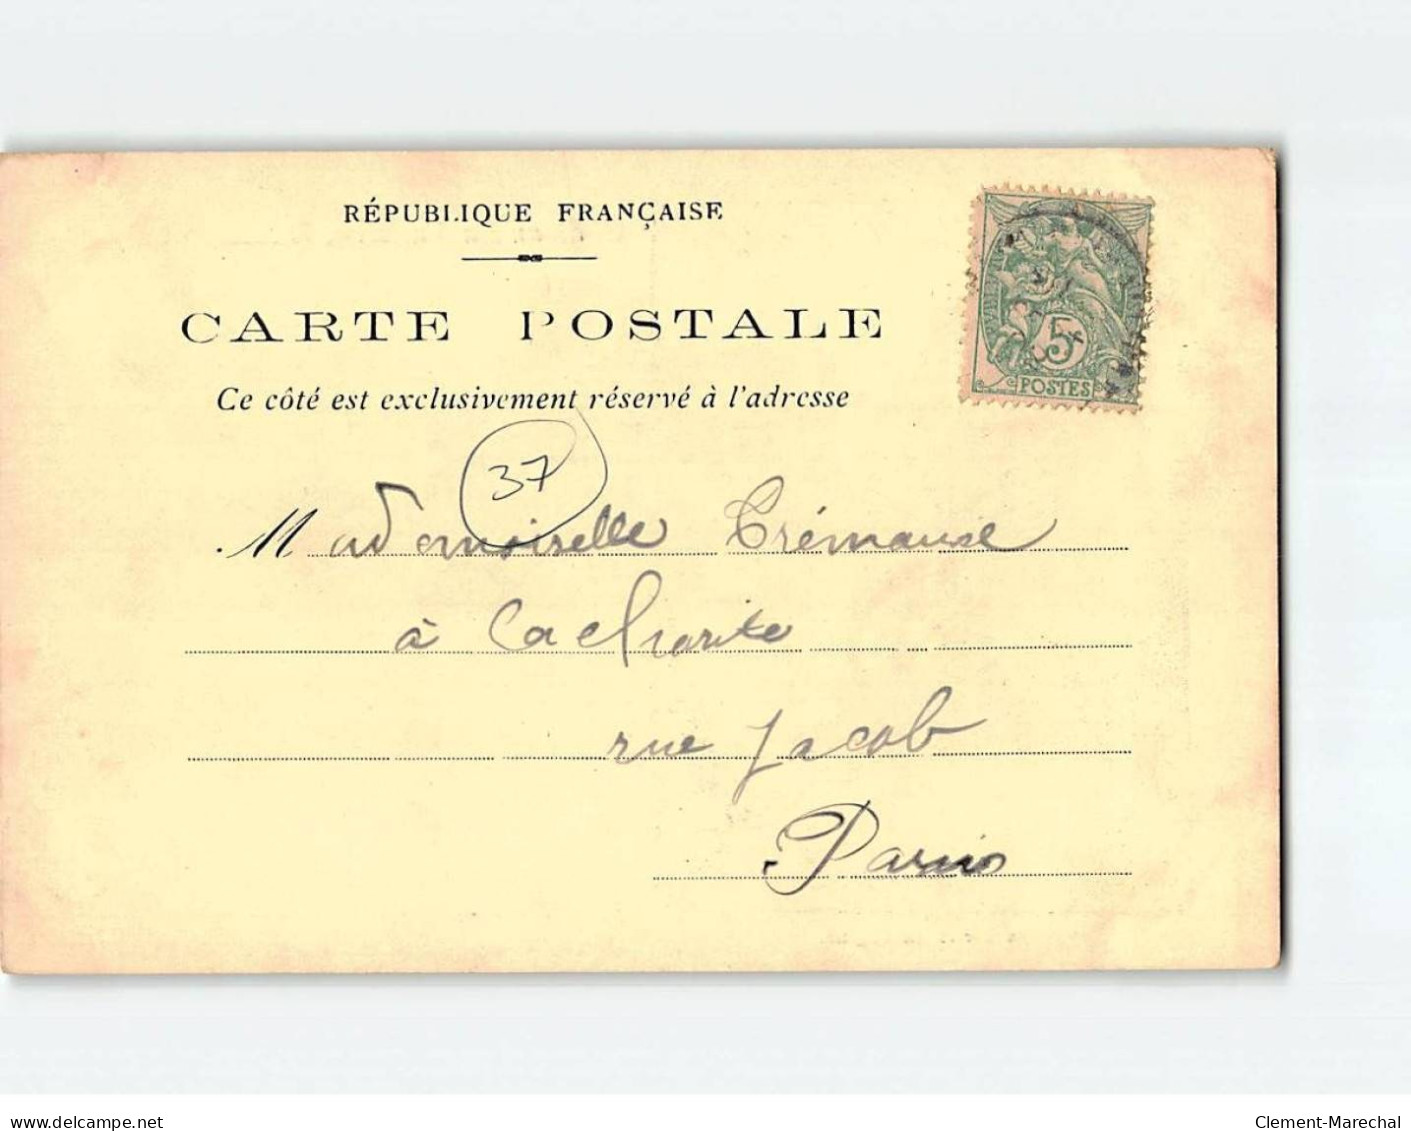 RÉPUBLIQUE FRANÇAISE
CARTE POSTALE
Ce côté est exclusivement réservé à l'adresse
5
POSTES
37
Mademoiselle Trémause
à La Charité
rue Jacob
Paris
delcampe.net
Clement-Marechal